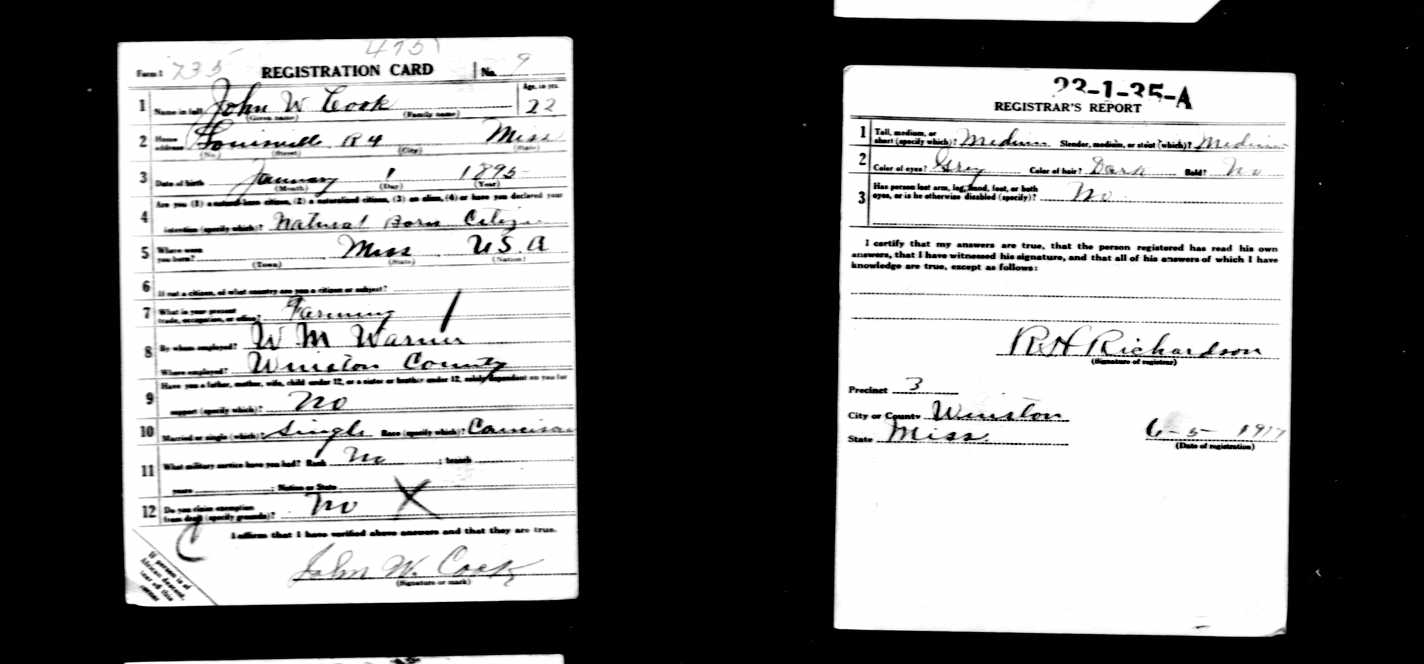 475
Form 1 735 REGISTRATION CARD No. 9
1 Name in full John W Cook Age, in yrs. 22
(Given name) (Family name)
2 Home address Louisville R4 Miss
(No.) (Street) (City) (State)
3 Date of birth January 1 1895
(Month) (Day) (Year)
Are you (1) a natural-born citizen, (2) a naturalized citizen, (3) an alien, (4) or have you declared your
4 intention (specify which)? Natural Born Citizen
5 Where were you born? Miss U.S.A
(Town) (State) (Nation)
6 If not a citizen, of what country are you a citizen or subject?
7 What is your present trade, occupation, or office? Farming
8 By whom employed? W M Warner
Where employed? Winston County
Have you a father, mother, wife, child under 12, or a sister or brother under 12, solely dependent on you for
9 support (specify which)? No
10 Married or single (which)? Single Race (specify which)? Caucisan
11 What military service have you had? Rank No ; branch
years ; Nation or State
12 Do you claim exemption from draft (specify grounds)? No X
I affirm that I have verified above answers and that they are true.
John W. Cook
(Signature or mark)
If person is of
African descent,
tear off this
corner
23-1-35-A
REGISTRAR'S REPORT
1 Tall, medium, or short (specify which)? Medium Slender, medium, or stout (which)? Medium
2 Color of eyes? Gray Color of hair? Dark Bald? No
3 Has person lost arm, leg, hand, foot, or both eyes, or is he otherwise disabled (specify)? No
I certify that my answers are true, that the person registered has read his own
answers, that I have witnessed his signature, and that all of his answers of which I have
knowledge are true, except as follows:
R H Richardson
(Signature of registrar)
Precinct 3
City or County Winston
State Miss. 6-5-1917
(Date of registration)